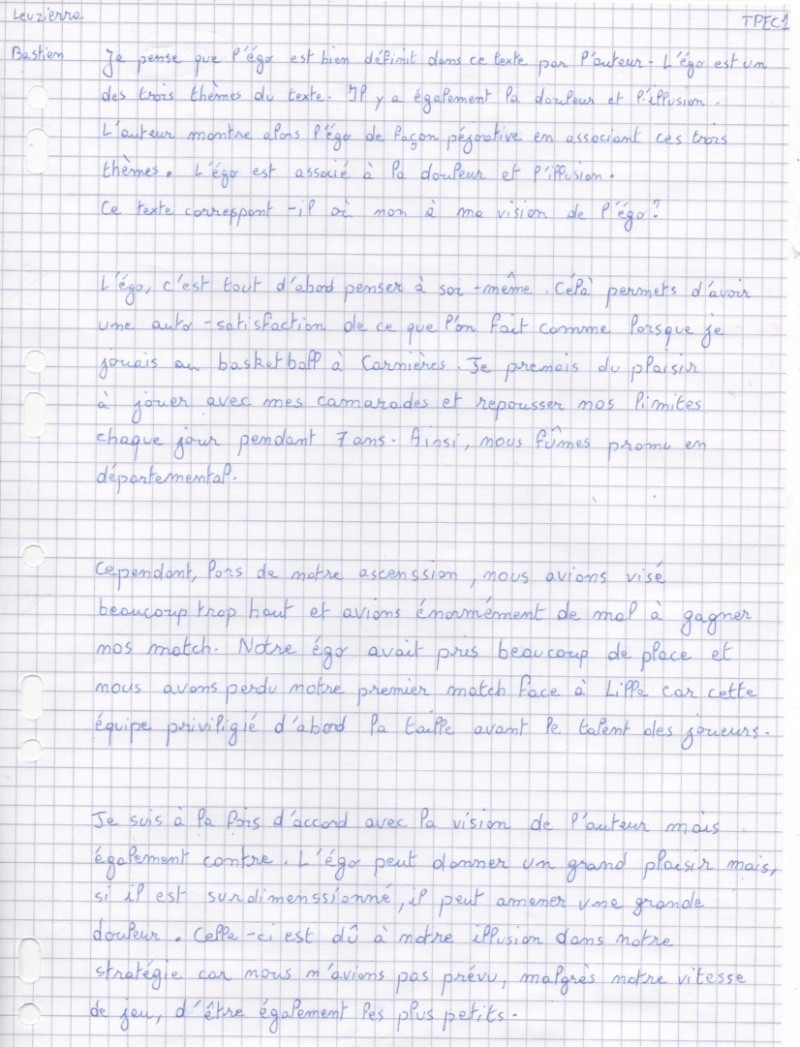 Leuzierra
TPEC1
Bastien
Je pense que l'égo est bien définit dans ce texte par l'auteur. L'égo est un
des trois thèmes du texte. Il y a également la douleur et l'illusion.
L'auteur montre alors l'égo de façon péjorative en associant ces trois
thèmes. L'égo est associé à la douleur et l'illusion.
Ce texte correspont-il où non à ma vision de l'égo?
L'égo, c'est tout d'abord penser à soi-même. Célà permets d'avoir
une auto-satisfaction de ce que l'on fait comme lorsque je
jouais au basketball à Carnières. Je prenais du plaisir
à jouer avec mes camarades et repousser nos limites
chaque jour pendant 7 ans. Ainsi, nous fûmes promu en
départemental.
Cependant, lors de notre ascenssion, nous avions visé
beaucoup trop haut et avions énormément de mal à gagner
nos match. Notre égo avait pris beaucoup de place et
nous avons perdu notre premier match face à Lille car cette
équipe priviligié d'abord la taille avant le talent des joueurs.
Je suis à la fois d'accord avec la vision de l'auteur mais
également contre. L'égo peut donner un grand plaisir mais,
si il est surdimenssionné, il peut amener une grande
douleur. Celle-ci est dû à notre illusion dans notre
stratégie car nous n'avions pas prévu, malgrès notre vitesse
de jeu, d'être également les plus petits.